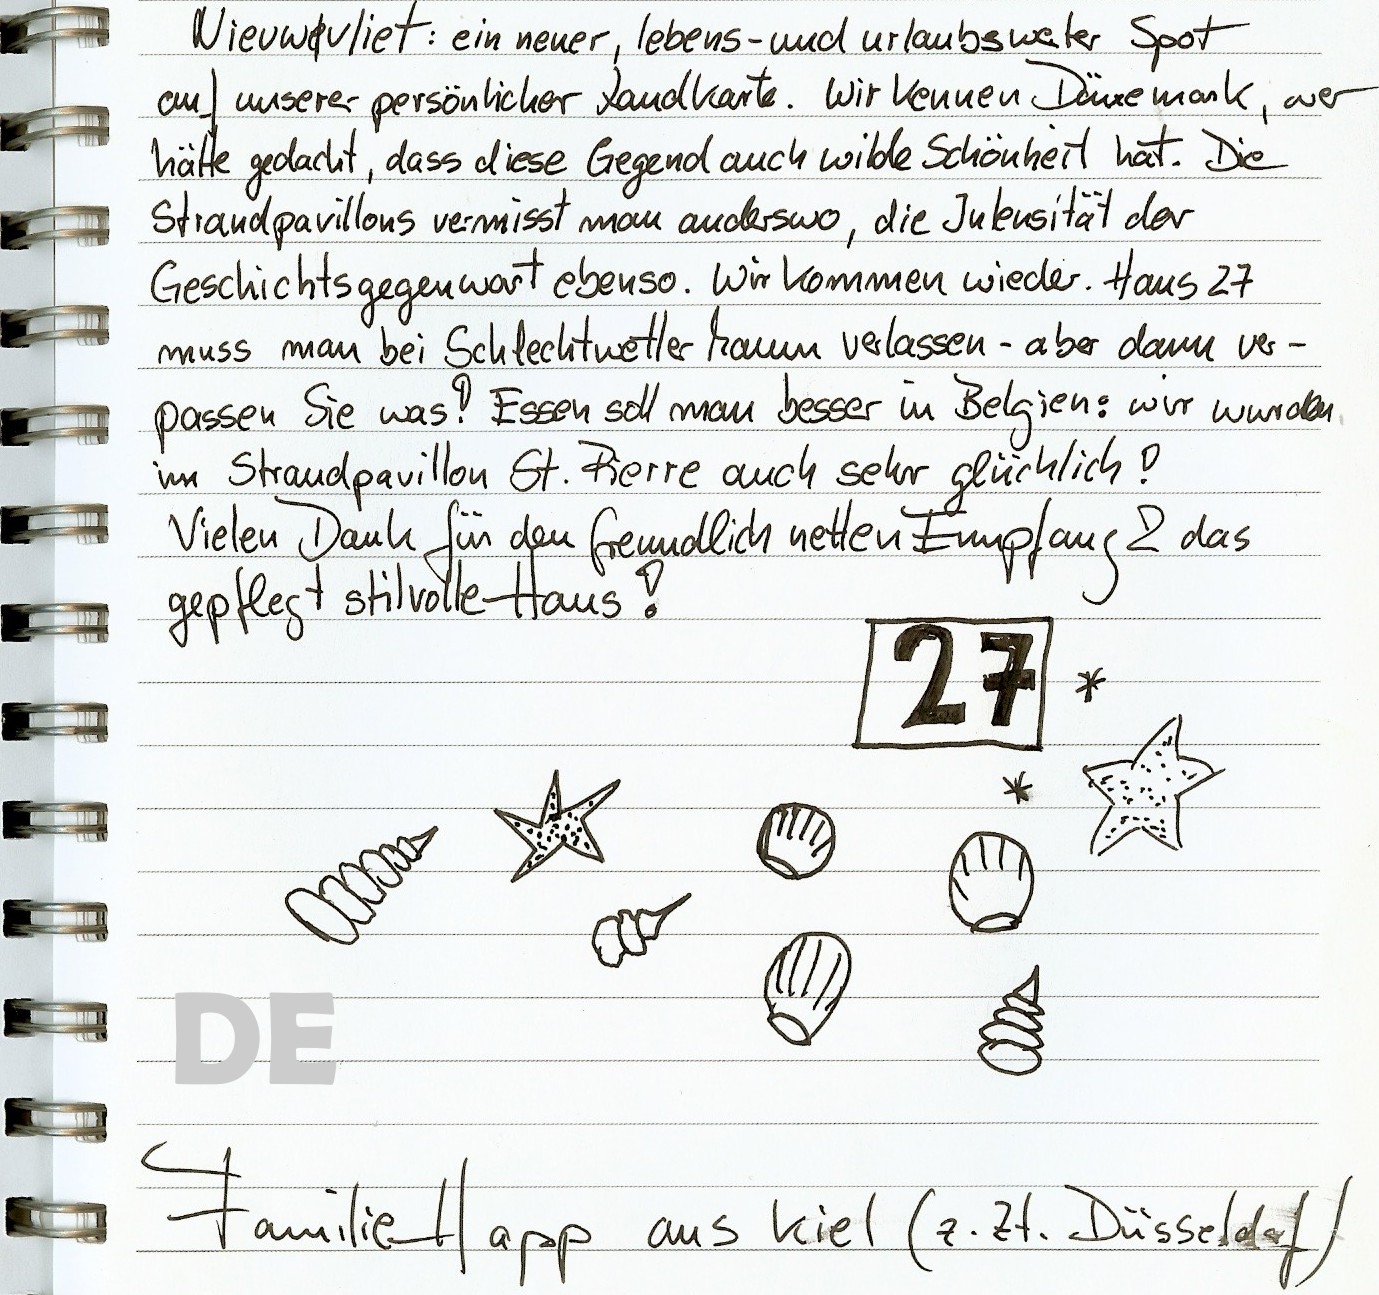 Nieuwvliet: ein neuer, lebens- und urlaubswerter Spot
auf unserer persönlicher Landkarte. Wir kennen Dänemark, wer
hätte gedacht, dass diese Gegend auch wilde Schönheit hat. Die
Strandpavillons vermisst man anderswo, die Intensität der
Geschichtsgegenwart ebenso. Wir kommen wieder. Haus 27
muss man bei Schlechtwetter kaum verlassen - aber dann ver-
passen Sie was! Essen soll man besser in Belgien: wir wurden
im Strandpavillon St. Pierre auch sehr glücklich!
Vielen Dank für den freundlich netten Empfang & das
gepflegt stilvolle Haus!
27
DE
Familie Happ aus Kiel (z. Zt. Düsseldorf)